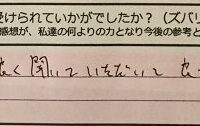 受けられていかがでしたか？（ズバリ
感想が、私達の何よりの力となり今後の参考と
良く聞いていただいて 良